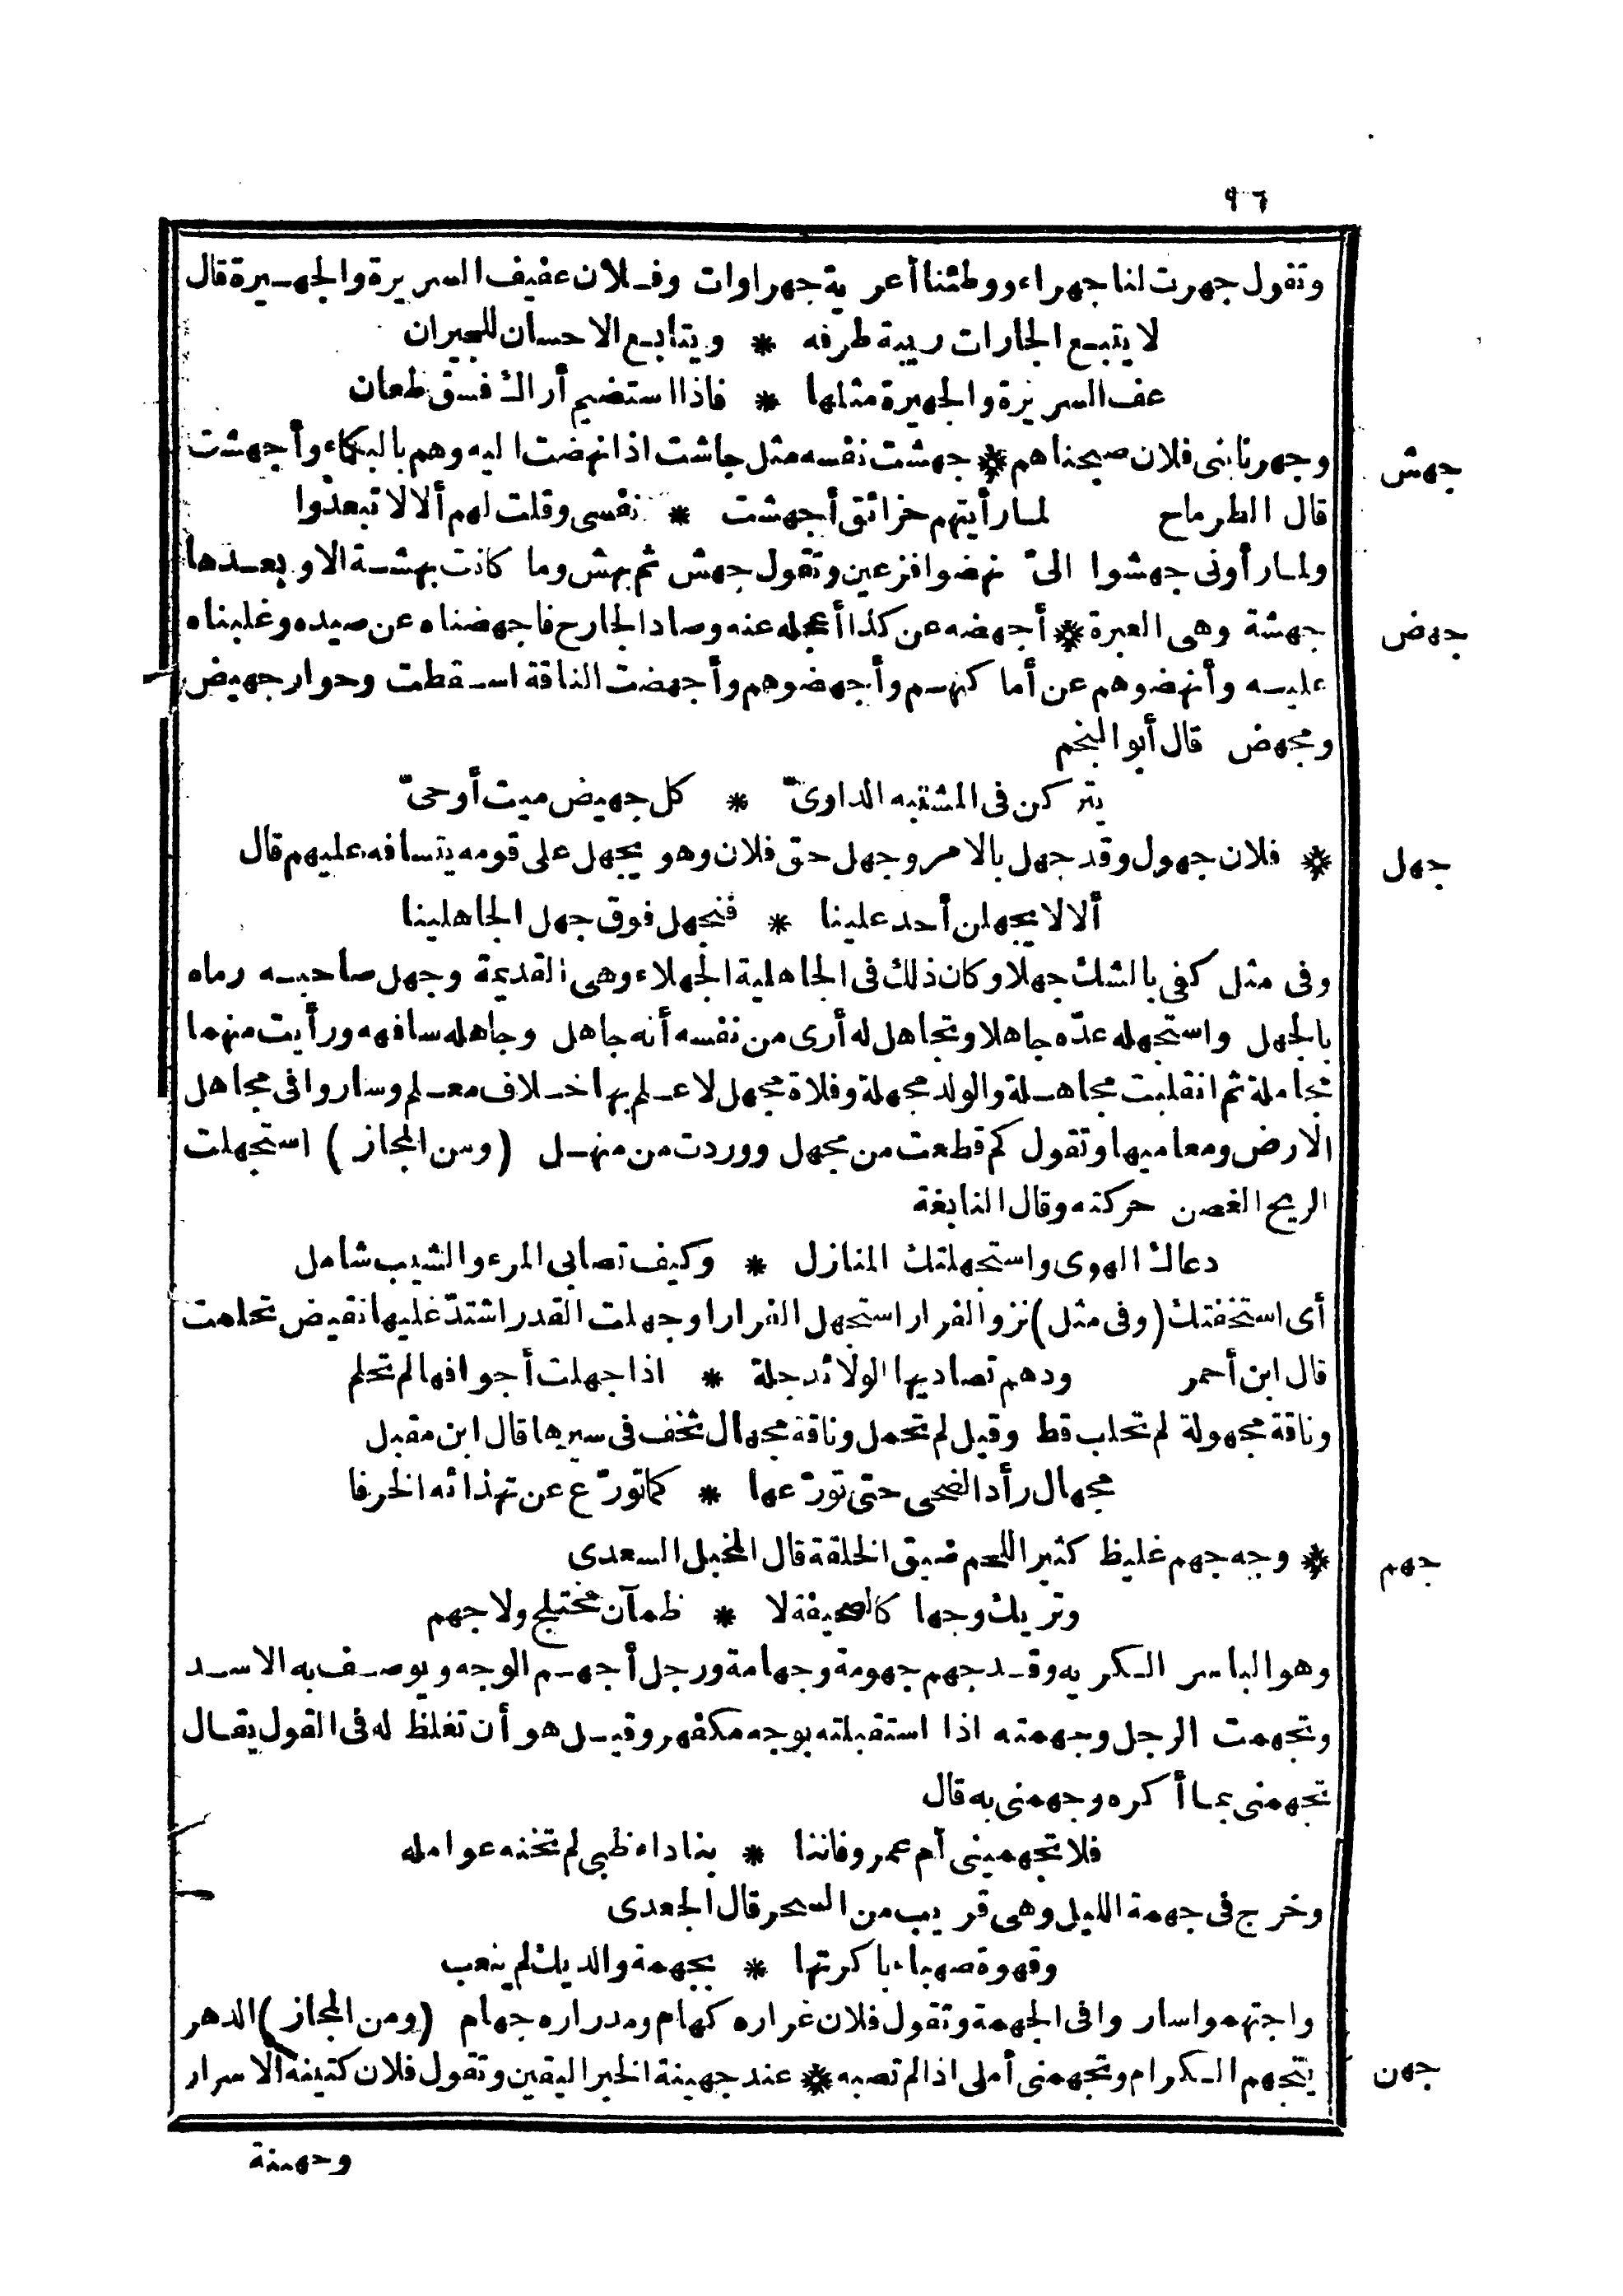 ٩٦
وتقول جهرت لنا جهراء ووطئنا أعرية جهراوات وفلان عفيف السريرة والجهيرة قال
لا يتبع الجارات ريبة طرفه * ويتابع الاحسان للجيران
عف السريرة والجهيرة مثلها * فاذا استضيم أراك فسق طعان
جهش
وجهرنا بنى فلان صبحناهم * جهشت نفسه مثل جاشت اذا نهضت اليه وهم بالبكاء وأجهشت
قال الطرماح لما رأيتهم حزائق أجهشت * نفسى وقلت لهم ألا لا تبعدوا
ولما رأونى جهشوا الىّ نهضوا فزعين وتقول جهش ثم بهش وما كانت بهشة الا وبعدها
جهض
جهشة وهى العبرة * أجهضه عن كذا أعجله عنه وصاد الجارح فاجهضناه عن صيده وغلبناه
عليه وأنهضوهم عن أماكنهم وأجهضوهم وأجهضت الناقة اسقطت وحوار جهيض
ومجهض قال أبو النجم
يتركن فى المشتبه الداوىّ * كل جهيض ميت أو حىّ
جهل
* فلان جهول وقد جهل بالامر وجهل حق فلان وهو يجهل على قومه يتسافه عليهم قال
ألا لا يجهلن أحد علينا * فنجهل فوق جهل الجاهلينا
وفى مثل كفى بالشك جهلا وكان ذلك فى الجاهلية الجهلاء وهى القديمة وجهل صاحبه رماه
بالجهل واستجهله عدّه جاهلا وتجاهل له أرى من نفسه أنه جاهل وجاهله سافهه ورأيت منهما
مجاملة ثم انقلبت مجاهلة والولد مجهلة وفلاة مجهل لا علم بها خلاف معلم وساروا فى مجاهل
الارض ومعاميها وتقول كم قطعت من مجهل ووردت من منهل (ومن المجاز) استجهلت
الريح الغصن حركته وقال النابغة
دعاك الهوى واستجهلتك المنازل * وكيف تصابى المرء والشيب شامل
أى استخفتك (وفى مثل) نزو الفرار استجهل الفرارا وجهلت القدر اشتدّ غليها نقيض تحلمت
قال ابن أحمر ودهم تصاديها الولائد جلة * اذا جهلت أجوافها لم تحلم
وناقة مجهولة لم تحلب قط وقيل لم تحمل وناقة مجهال تخف فى سيرها قال ابن مقبل
مجهال رأد الضحى حتى تورّعها * كما تورّع عن تهذائه الخرفا
جهم
* وجه جهم غليظ كثير اللحم ضيق الخلقة قال المخبل السعدى
وتريك وجها كالصحيفة لا * ظمآن مختلج ولا جهم
وهو الباسر الكريه وقد جهم جهومة وجهامة ورجل أجهم الوجه ويوصف به الاسد
وتجهمت الرجل وجهمته اذا استقبلته بوجه مكفهر وقيل هو أن تغلظ له فى القول يقال
تجهمنى بما أكره وجهمنى به قال
فلا تجهمينى أم عمرو فاننا * بنا داء ظبى لم تخنه عوامله
وخرج فى جهمة الليل وهى قريب من السحر قال الجعدى
وقهوة صهباء باكرتها * بجهمة والديك لم ينعب
واجتهموا ساروا فى الجهمة وتقول فلان غراره كهام ومدراره جهام (ومن المجاز) الدهر
جهن
يتجهم الكرام وتجهمنى أملى اذا لم تصبه * عند جهينة الخبر اليقين وتقول فلان كتينة الاسرار
وجهينة